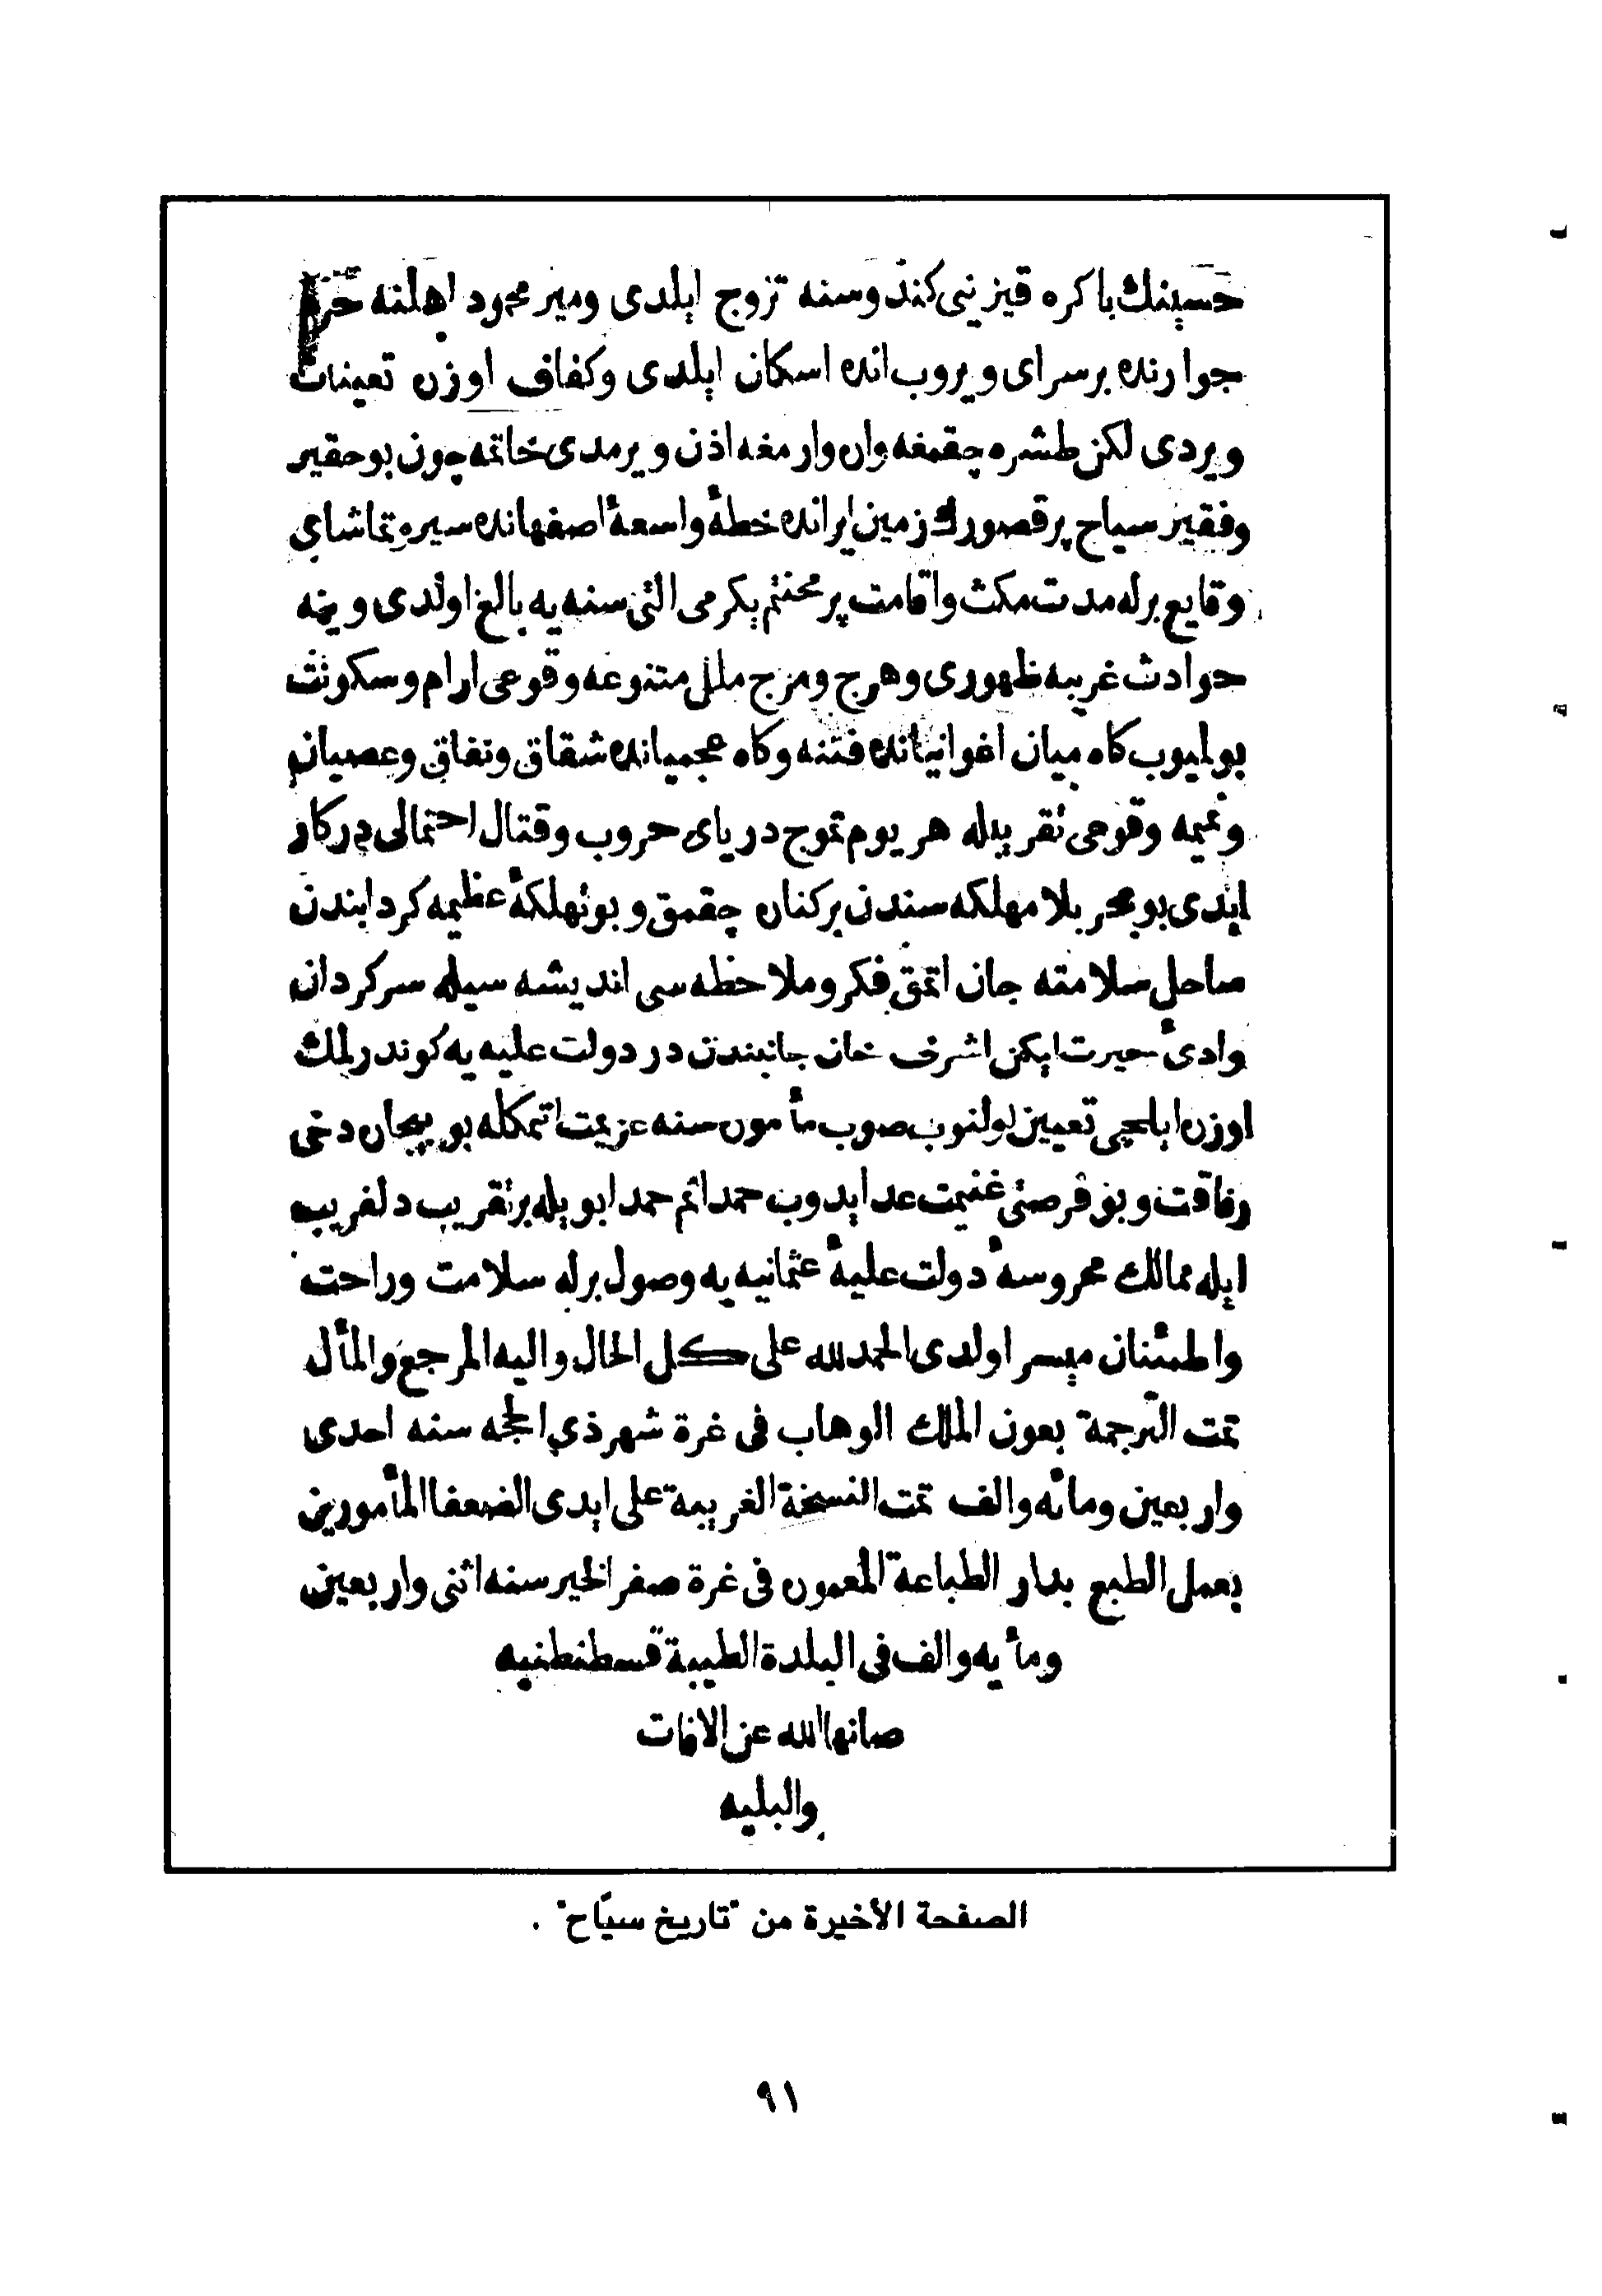 حسينك باكره قيزنى كندوسنه تزوج ايلدى ومير محمود اهلنه حرم
جوارنده بر سراى ويروب انده اسكان ايلدى وكفاف اوزره تعينات
ويردى لكن طشره چقمغه واره وارمغه اذن ويرمدى خاتمه چون بو حقير
وفقير سياح پر قصورك زمين ايرانده خطهٔ واسعهٔ اصفهانده سير وتماشاى
وقايع برله مدت مكث واقامت پر محنتم يكرمى التى سنه يه بالغ اولدى ونيجه
حوادث غريبه ظهورى وهرج ومرج ملل متنوعه وقوعى ارام وسكونت
بولميوب كاه ميان اغوانيانده فتنه وكاه عجميانده شقاق ونفاق وعصيان
وقوعى تقريبله هر يوم تموج درياى حروب وقتال احتمالى دركار
ايدى بو بحر بلا مهلكه سندن بركنار چقمق وبو تهلكهٔ عظيمه كردابندن
ساحل سلامته جان اتمق فكر وملاحظه سى انديشه سيله سركردان
وادئ حيرت ايكن اشرف خان جانبندن در دولت عليه يه كوندرلمك
اوزره ايلچى تعيين اولنوب صوب مأمورسنه عزيمت اتمكله بو بيجان دخى
رفاقت وبو فرصتى غنيمت عد ايدوب حمدا ثم حمدا بويله بر تقريب دلفريب
ايله ممالك محروسهٔ دولت عليهٔ عثمانيه يه وصول برله سلامت وراحت
واطمئنان ميسر اولدى الحمد لله على كل الحال واليه المرجع والمأل
تمت الترجمة بعون الملك الوهاب فى غرة شهر ذي الحجه سنه احدى
واربعين ومائه والف تمت النسخة الغريبة على ايدى الضعفا المأمورين
بعمل الطبع بدار الطباعة المعموره فى غرة صفر الخير سنه اثنى واربعين
ومأيه والف فى البلدة الطيبة قسطنطنيه
صانها الله عن الافات
والبليه
الصفحة الأخيرة من "تاريخ سيّاح" .
٩١